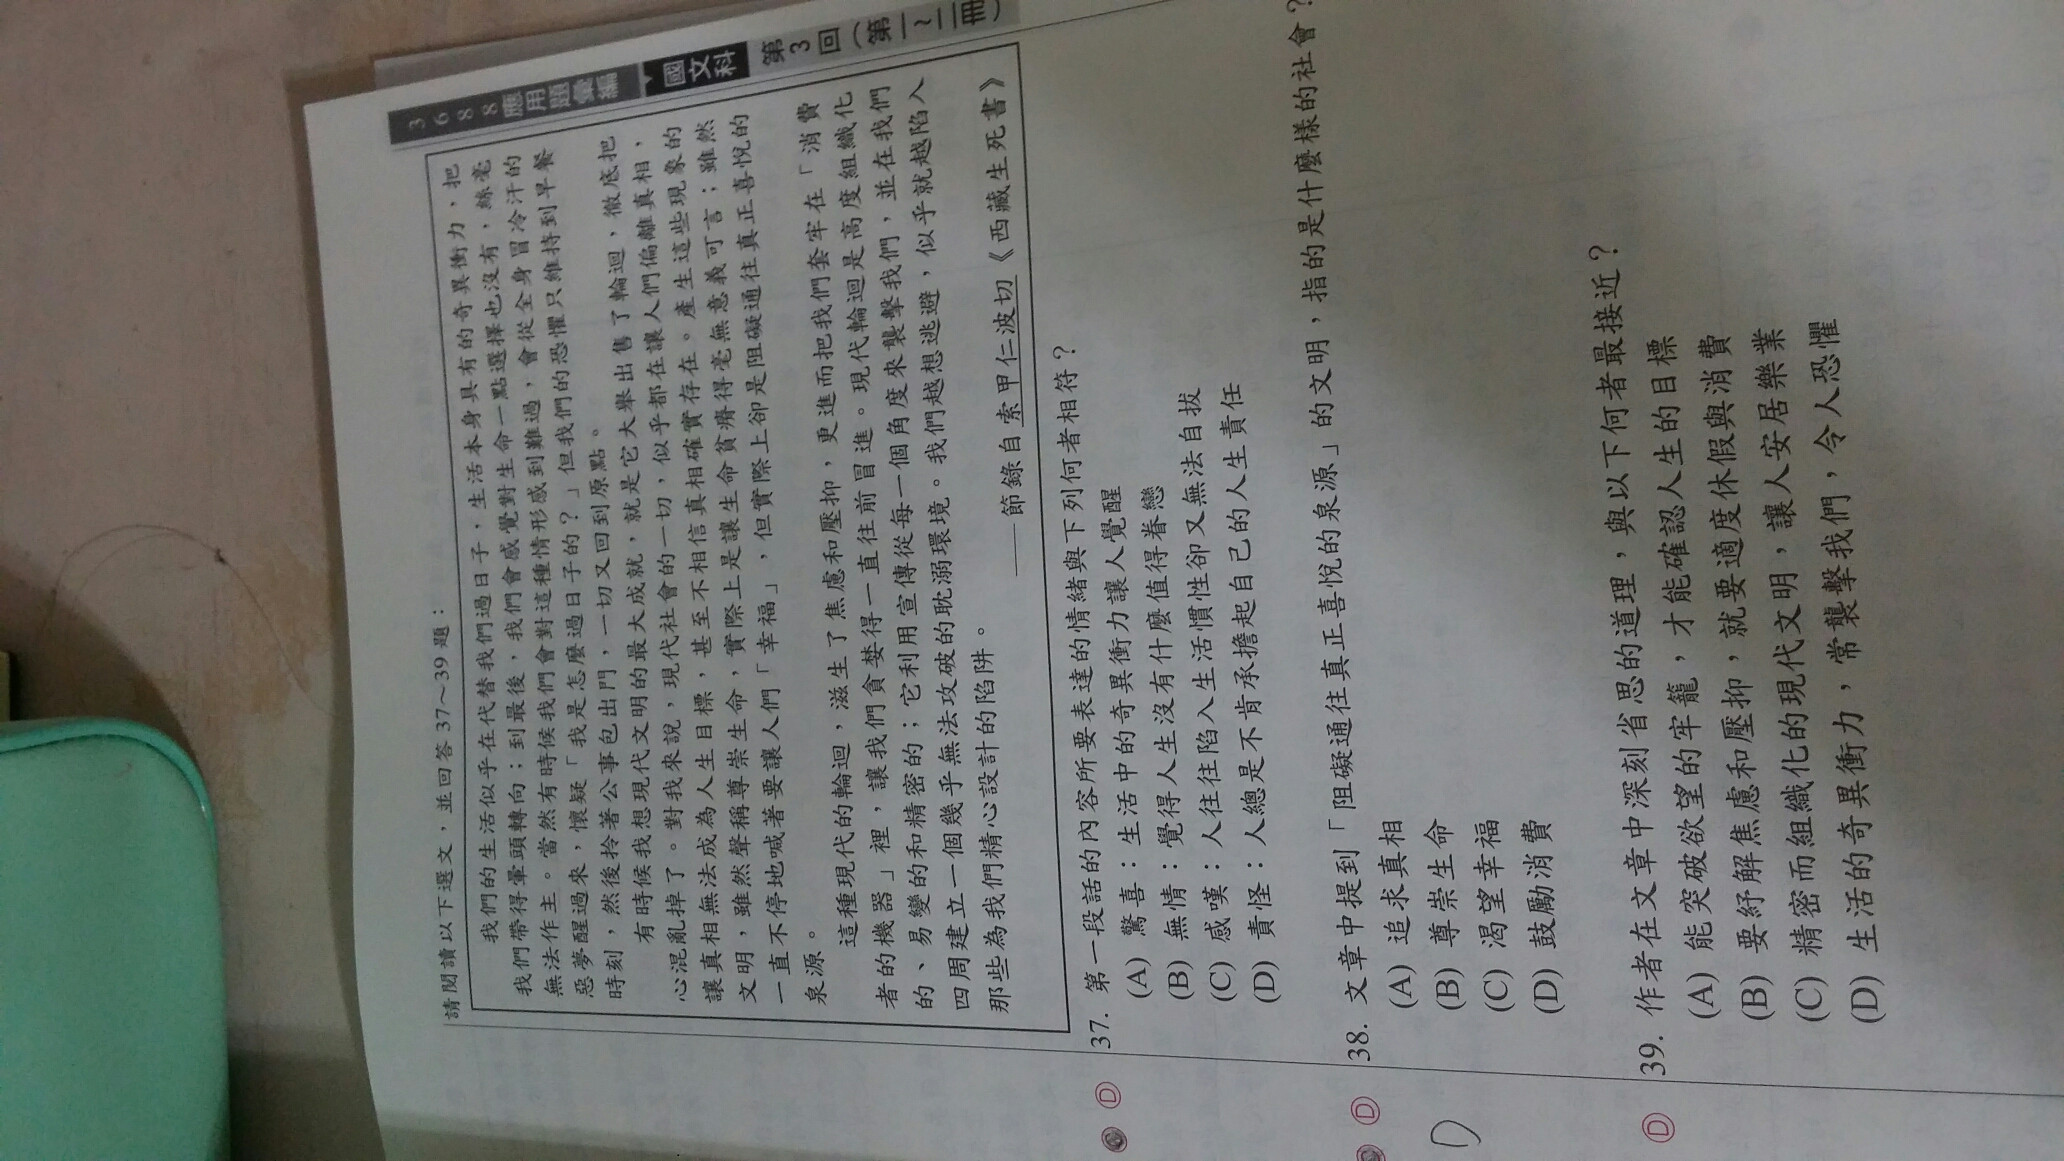 3688應用題彙編
國文科
第3回(第一~二冊)
請閱讀以下選文,並回答 37~39 題:
我們的生活似乎在代替我們過日子,生活本身具有的奇異衝力,把
我們帶得暈頭轉向;到最後,我們會感覺對生命一點選擇也沒有,絲毫
無法作主。當然有時候我們會對這種情形感到難過,會從全身冒冷汗的
惡夢醒過來,懷疑「我是怎麼過日子的?」但我們的恐懼只維持到早餐
時刻,然後拎著公事包出門,一切又回到原點。
有時候我想現代文明的最大成就,就是它大舉出售了輪迴,徹底把
心混亂掉了。對我來說,現代社會的一切,似乎都在讓人們偏離真相,
讓真相無法成為人生目標,甚至不相信真相確實存在。產生這些現象的
文明,雖然聲稱尊崇生命,實際上是讓生命貧瘠得毫無意義可言;雖然
一直不停地喊著要讓人們「幸福」,但實際上卻是阻礙通往真正喜悅的
泉源。
這種現代的輪迴,滋生了焦慮和壓抑,更進而把我們套牢在「消費
者的機器」裡,讓我們貪婪得一直往前冒進。現代輪迴是高度組織化
的、易變的和精密的;它利用宣傳從每一個角度來襲擊我們,並在我們
四周建立一個幾乎無法攻破的耽溺環境。我們越想逃避,似乎就越陷入
那些為我們精心設計的陷阱。
——節錄自索甲仁波切《西藏生死書》
37. 第一段話的內容所要表達的情緒與下列何者相符?
(A) 驚喜:生活中的奇異衝力讓人覺醒
(B) 無情:覺得人生沒有什麼值得眷戀
(C) 感嘆:人往往陷入生活慣性卻又無法自拔
(D) 責怪:人總是不肯承擔起自己的人生責任
38. 文章中提到「阻礙通往真正喜悅的泉源」的文明,指的是什麼樣的社會?
(A) 追求真相
(B) 尊崇生命
(C) 渴望幸福
(D) 鼓勵消費
39. 作者在文章中深刻省思的道理,與以下何者最接近?
(A) 能突破欲望的牢籠,才能確認人生的目標
(B) 要紓解焦慮和壓抑,就要適度休假與消費
(C) 精密而組織化的現代文明,讓人安居樂業
(D) 生活的奇異衝力,常襲擊我們,令人恐懼
D
D
D
D